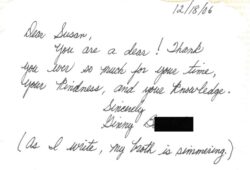 12/18/06
Dear Susan,
You are a dear! Thank
you ever so much for your time,
your kindness, and your knowledge.
Sincerely
Ginny B
(As I write, my broth is simmering)